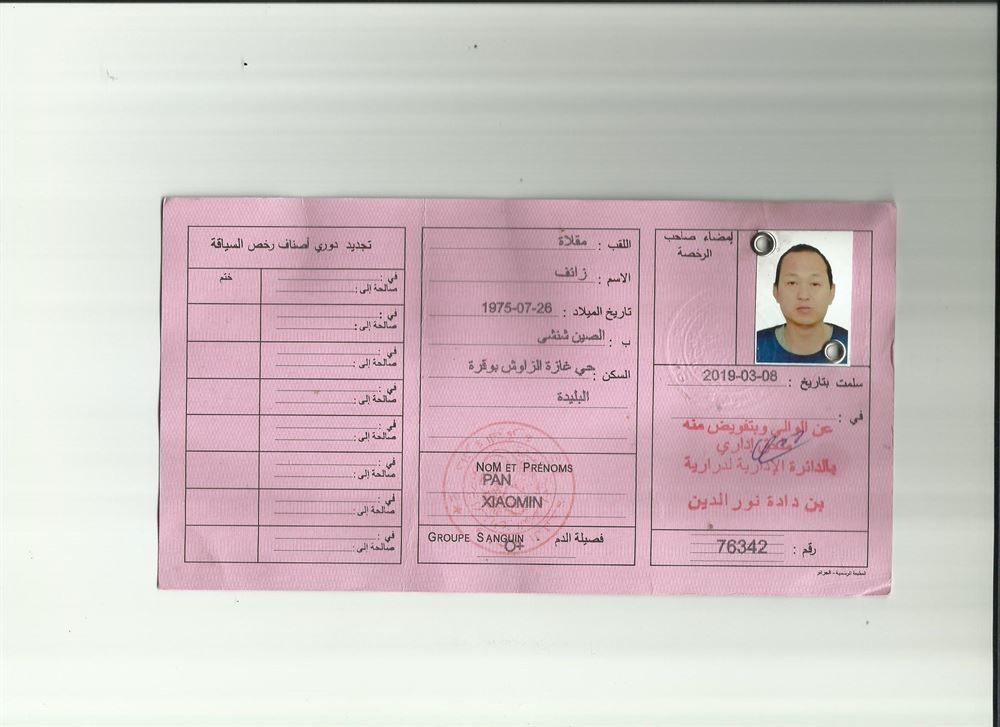 إمضاء صاحب
الرخصة
سلمت بتاريخ : 2019-03-08
في :
عن الوالي وبتفويض منه
إداري
بالدائرة الإدارية لدرارية
بن دادة نور الدين
رقم : 76342
المطبعة الرسمية - الجزائر
اللقب : مقلاة
الاسم : زائف
تاريخ الميلاد : 1975-07-26
ب : الصين شنشي
السكن : حي غازة الزاوش بوقرة
البليدة
NOM ET PRÉNOMS
PAN
XIAOMIN
GROUPE SANGUIN فصيلة الدم
O+
تجديد دوري أصناف رخص السياقة
ختم
في :
صالحة إلى :
في :
صالحة إلى :
في :
صالحة إلى :
في :
صالحة إلى :
في :
صالحة إلى :
في :
صالحة إلى :
في :
صالحة إلى :
في :
صالحة إلى :